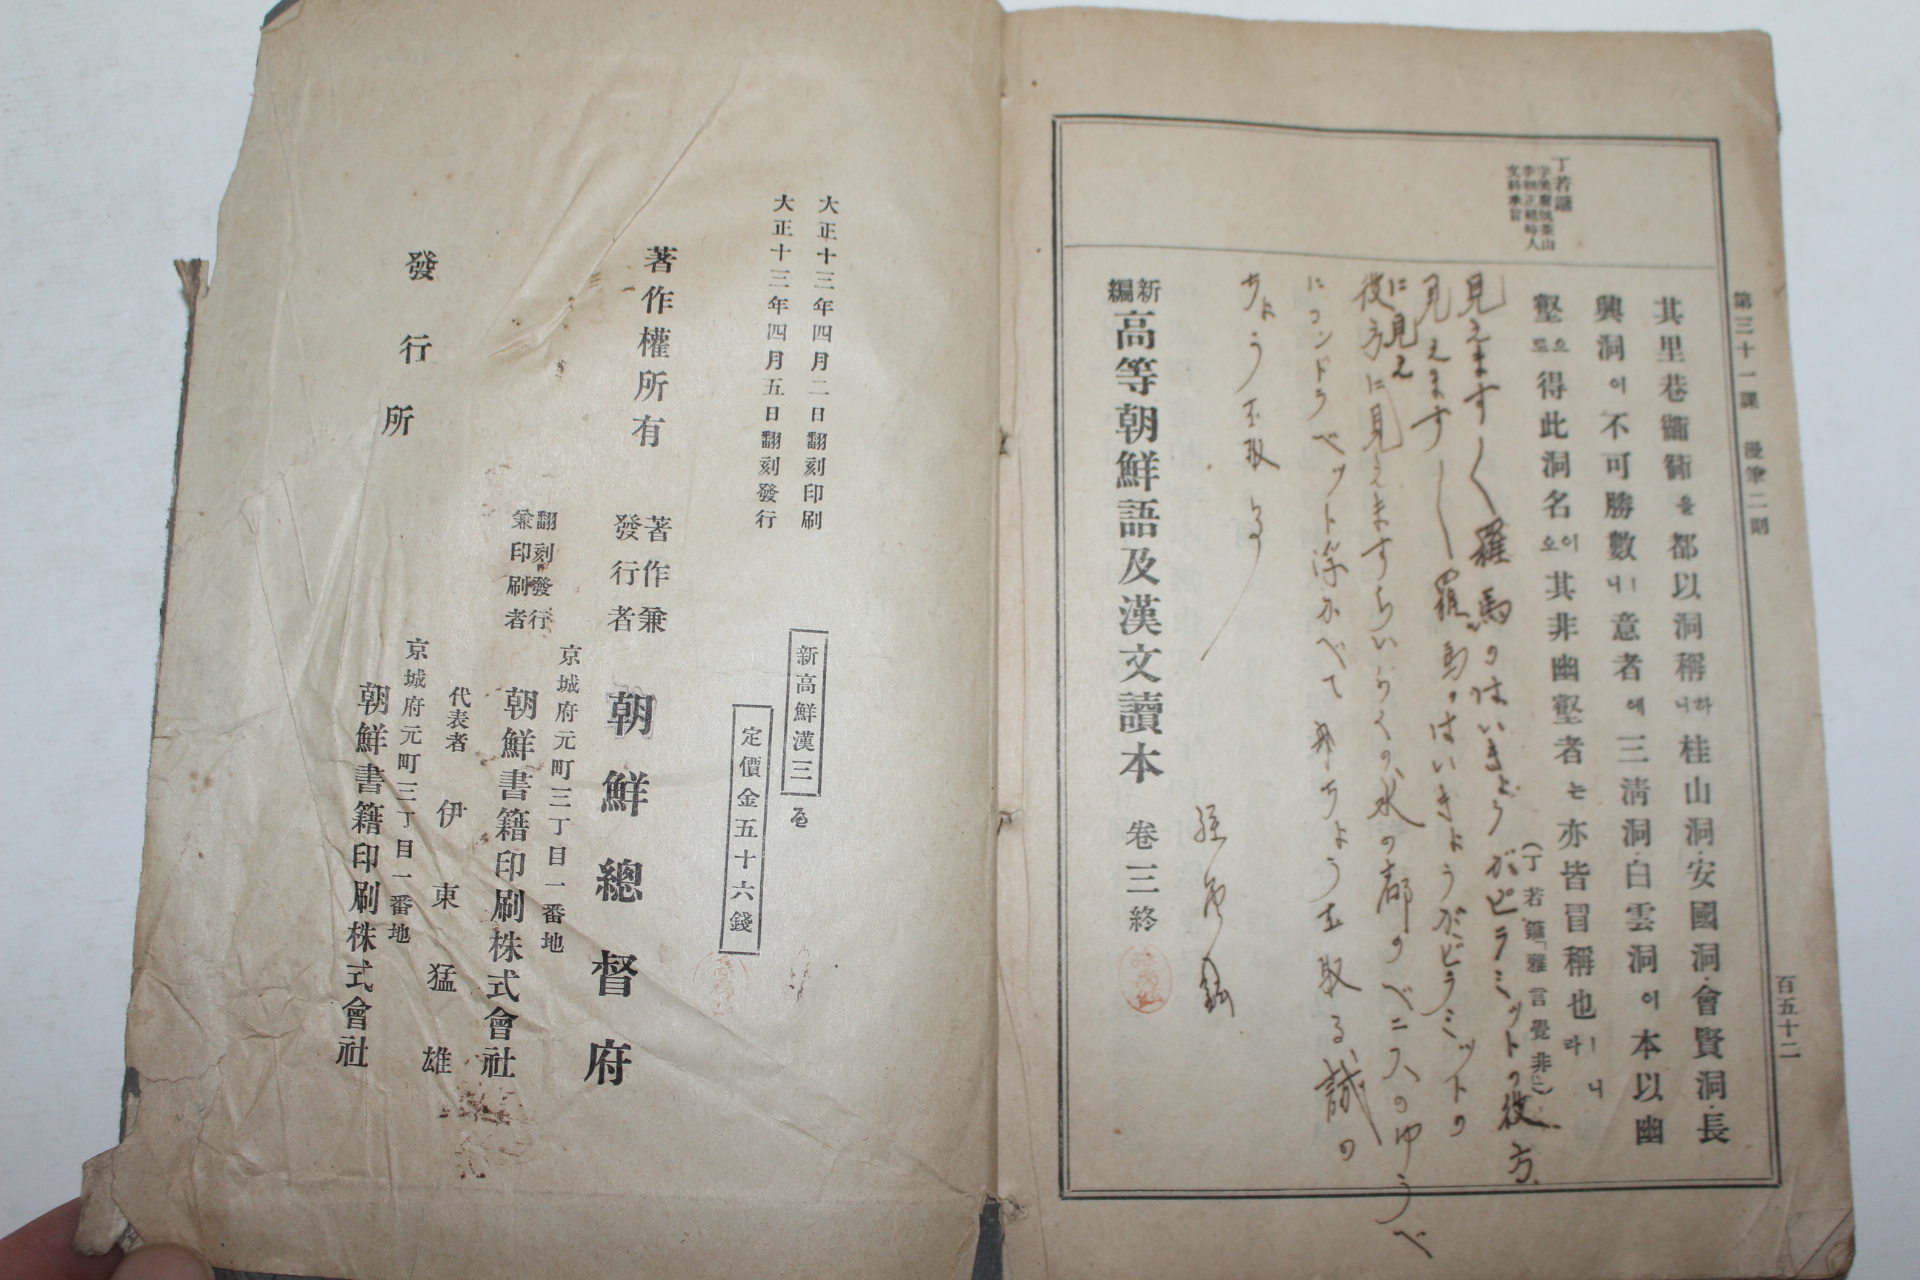 第三十一課 漫筆二則
百五十二
丁若鏞
字美庸號茶山
李朝正祖時人
文科承旨
其里巷衚衕을都以洞稱하니桂山洞·安國洞·會賢洞·長
興洞이不可勝數니!意者에三淸洞·白雲洞이本以幽
壑으로得此洞名이오其非幽壑者는亦皆冒稱也ㅣ라니
(丁若鏞「雅言覺非」)
見えます〱羅馬のはいきょうがピラミットの彼方
見えます〱羅馬のはいきようがピラミットの
に見え
彼方に見えますらいらくの水の都のベニスのゆうべ
にコンドラベット浮かべて
ちようを取る誠の
ちょうを取る
新編高等朝鮮語及漢文讀本 卷三 終
大正十三年四月二日翻刻印刷
大正十三年四月五日翻刻發行
新高鮮漢三
定價金五十六錢
著作權所有
著作兼發行者 朝鮮總督府
京城府元町三丁目一番地
翻刻發行兼印刷者 朝鮮書籍印刷株式會社
代表者 伊東猛雄
京城府元町三丁目一番地
發行所 朝鮮書籍印刷株式會社